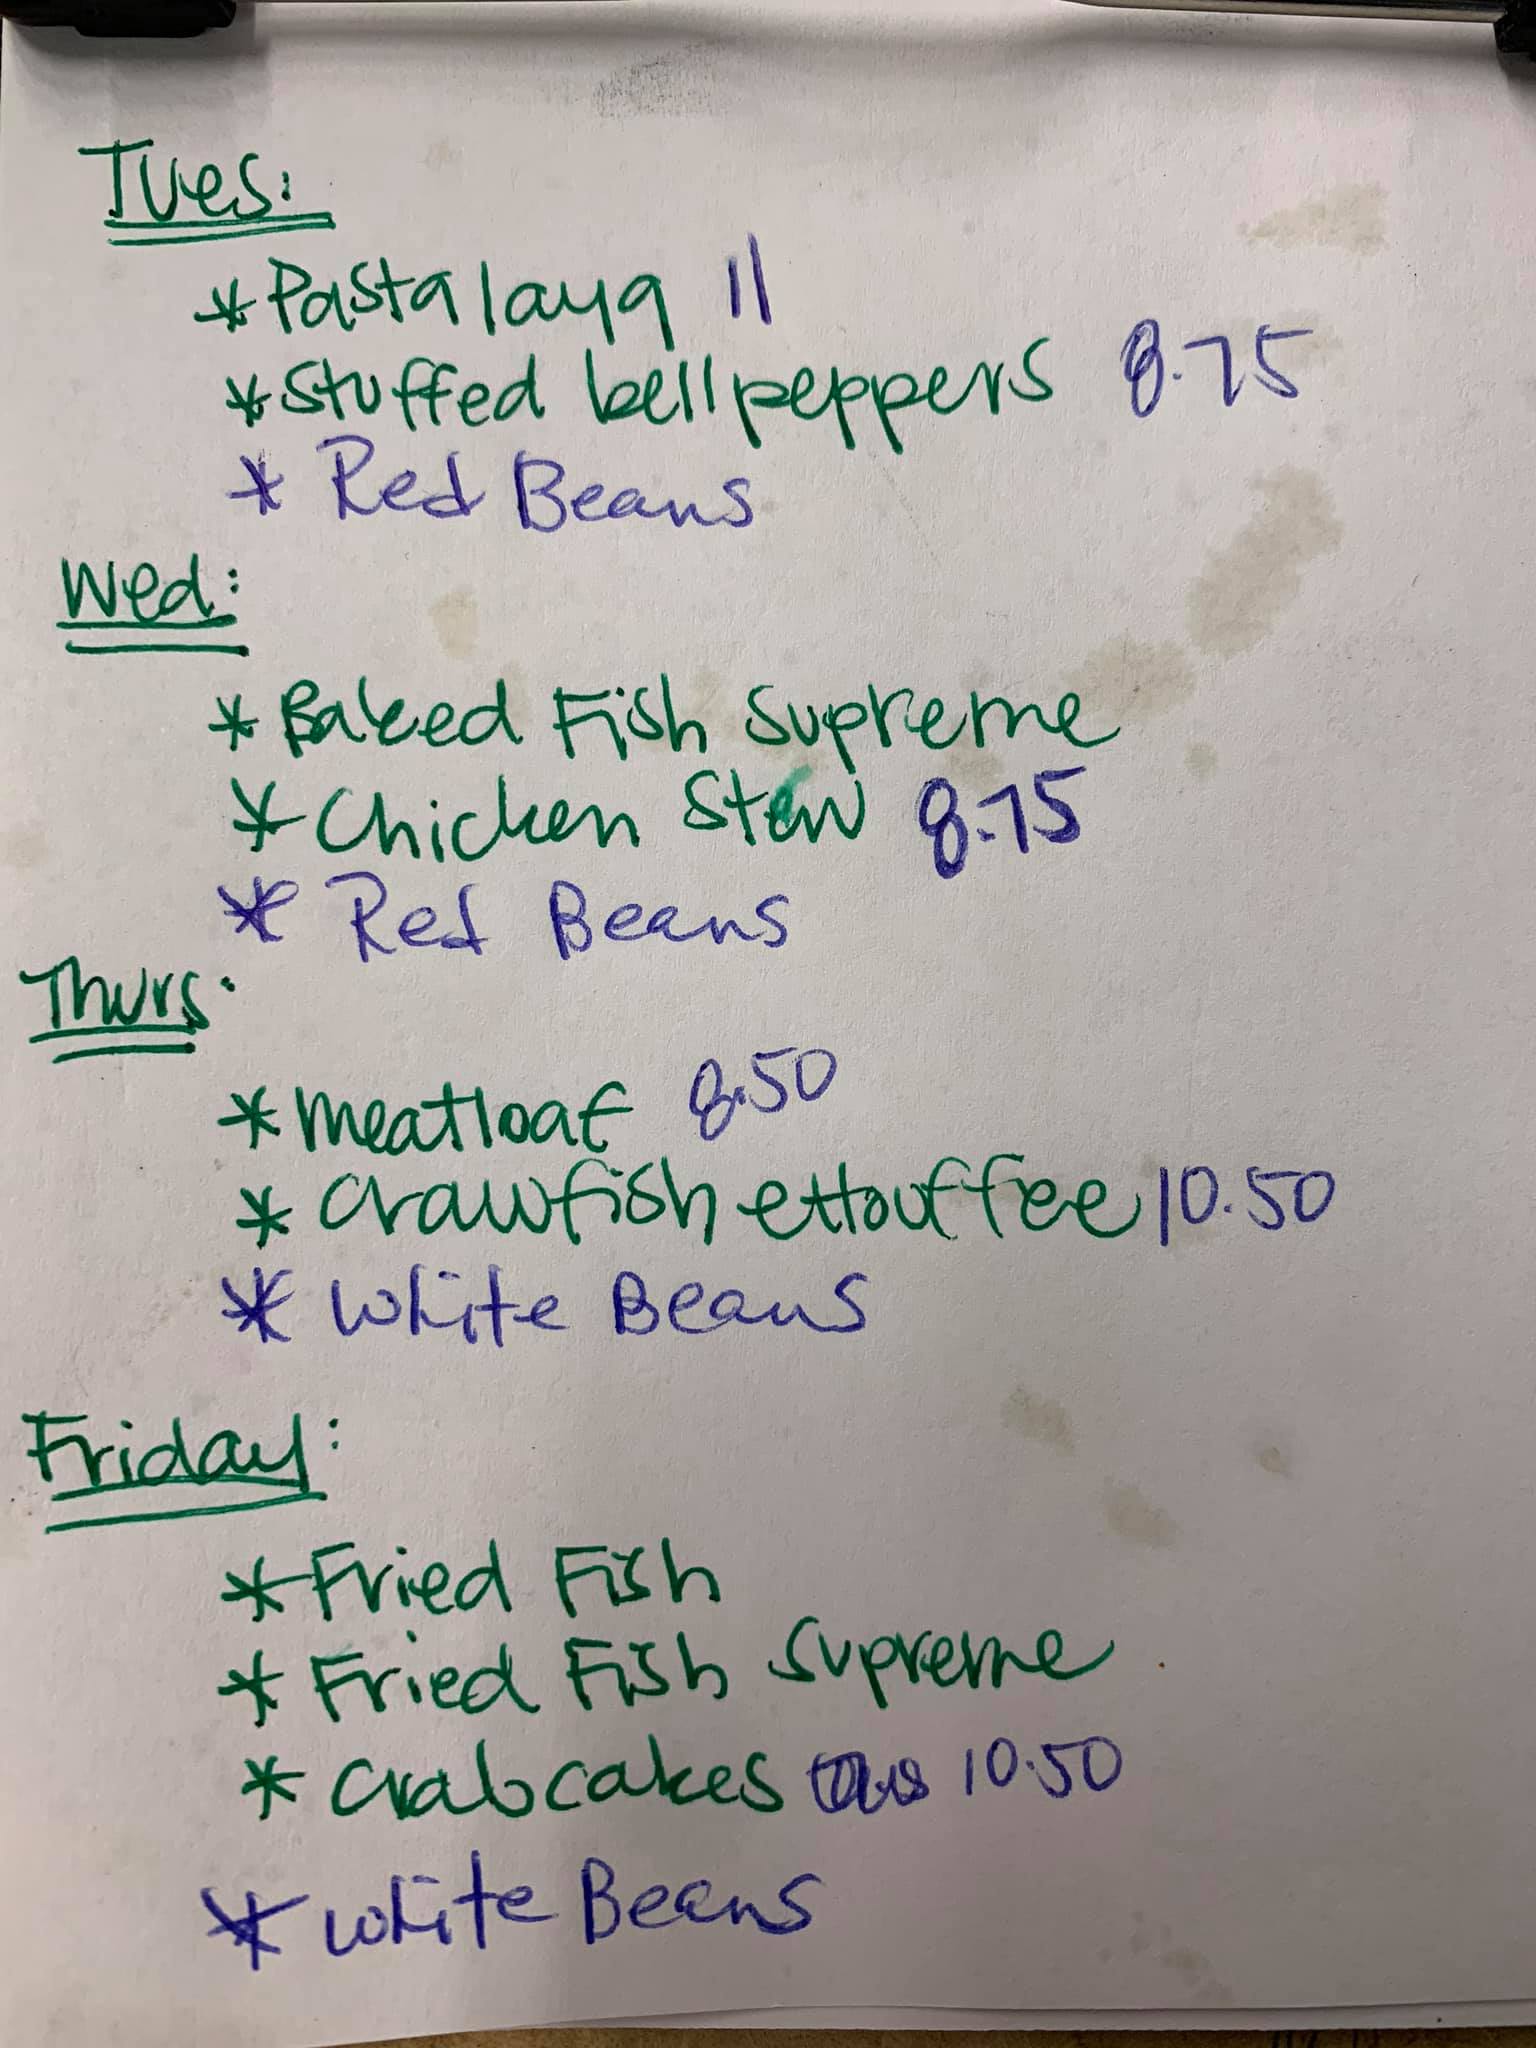 Tues:
*Pastalaya 11
*Stuffed bellpeppers 8.75
* Red Beans
Wed:
*Baked Fish Supreme
*Chicken Stew 8.75
* Red Beans
Thurs:
*Meatloaf 8.50
* Crawfish ettouffee 10.50
* White Beans
Friday:
*Fried Fish
* Fried Fish Supreme
* Crabcakes 10.50
* White Beans